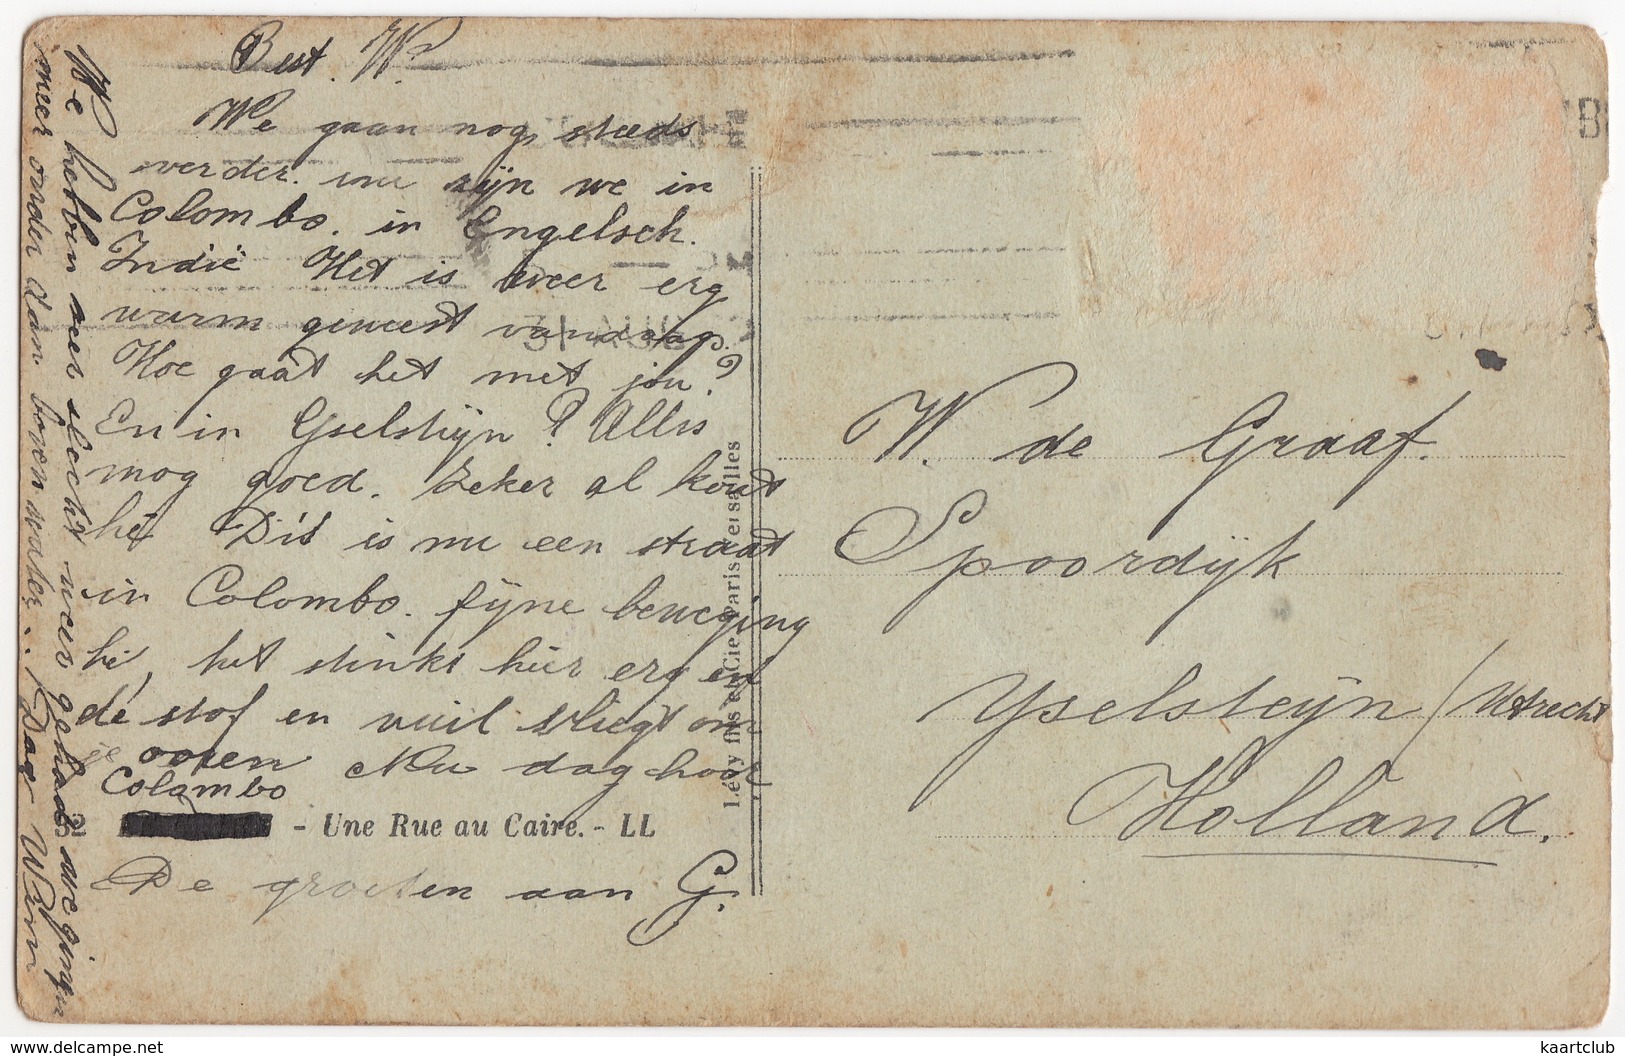 Best. W.
We gaan nog steeds
verder. nu zijn we in
Colombo. in Engelsch.
Indië Het is weer erg
warm geweest vandaag.
Hoe gaat het met jou?
En in Yselstijn? Alles
mog goed. Zeker al koud
hé Dit is nu een straat
in Colombo. fijne beweging
hé, het stinkt hier erg en
de stof en vuil vliegt om
je ooren Nu dag hoor
Colombo
- Une Rue au Caire. - LL
De groeten aan G.
We hebben zeer slecht weer gehad we gingen
meer onder dan boven water. Dag Wim
Lévy Fils et Cie Paris Versailles
W. de Graaf.
Spoordijk
Yselsteijn / Utrecht
Holland.
kaartclub
delcampe.net